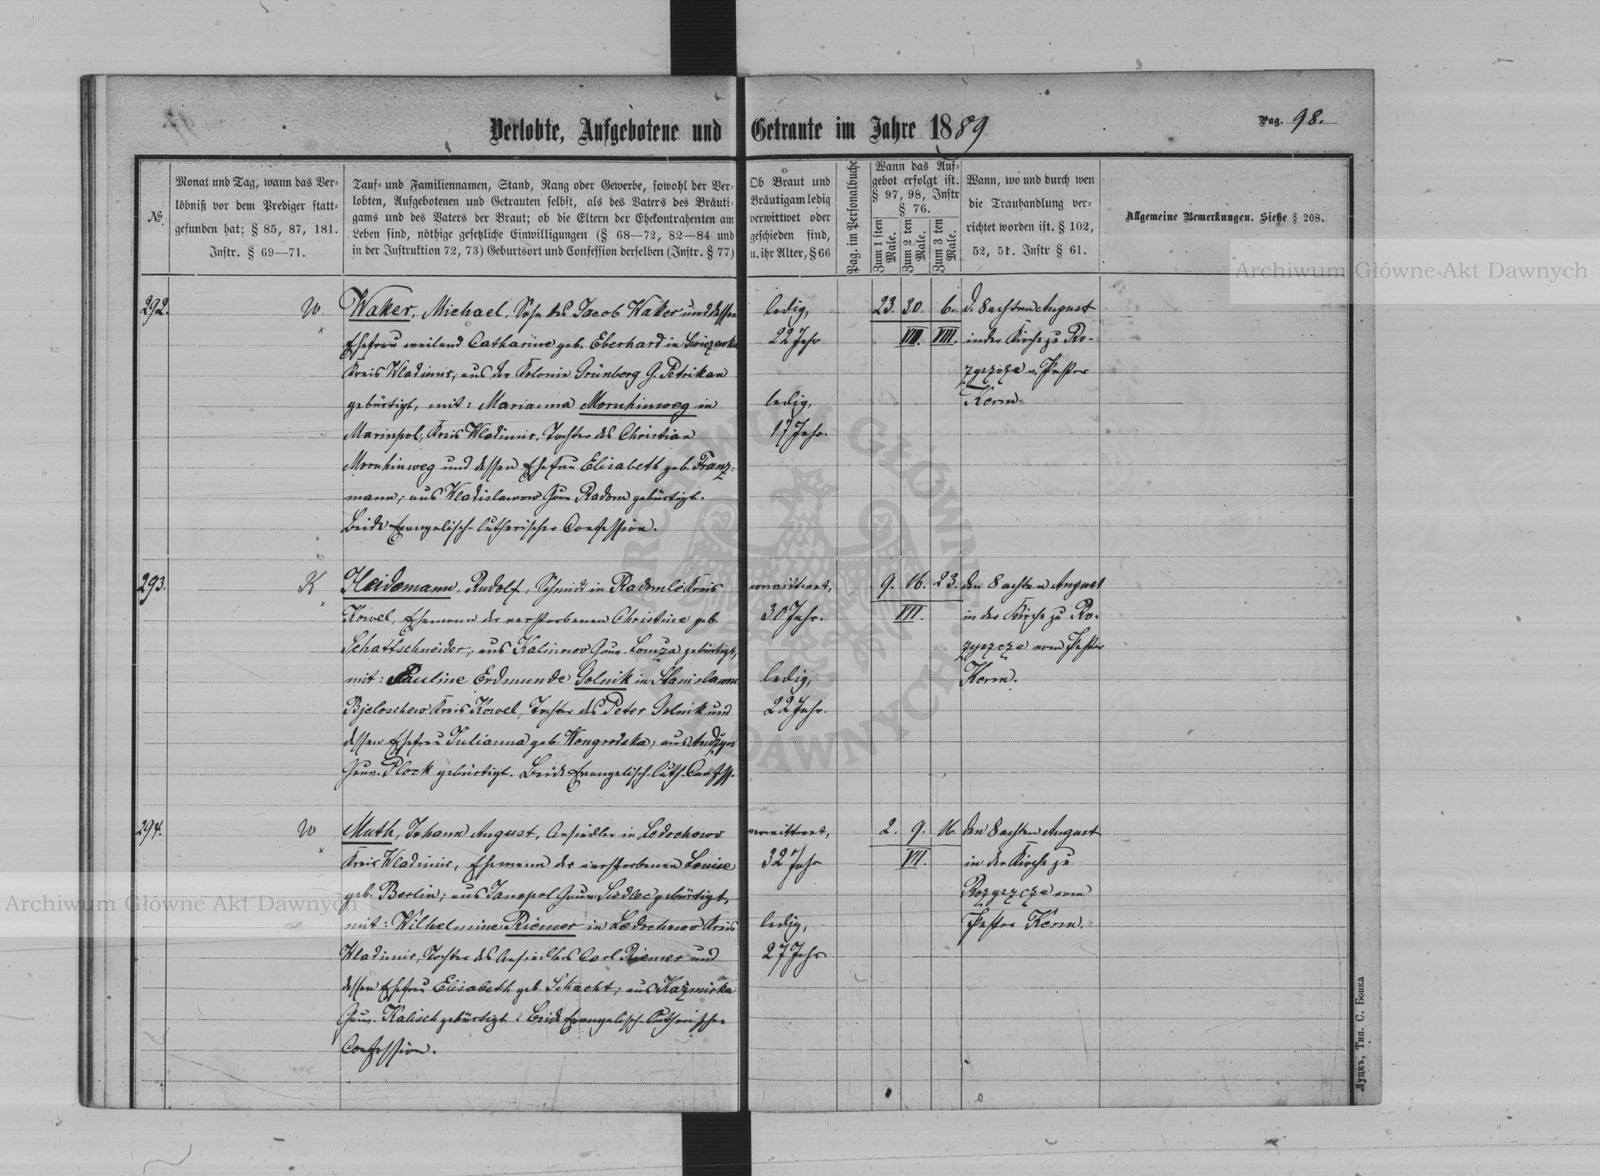 Verlobte, Aufgebotene und Getraute im Jahre 1889
Pag. 98.
№.
Monat und Tag, wann das Ver-
löbniß vor dem Prediger statt-
gefunden hat; § 85, 87, 181.
Instr. § 69—71.
Tauf- und Familiennamen, Stand, Rang oder Gewerbe, sowohl der Ver-
lobten, Aufgebotenen und Getrauten selbst, als des Vaters des Bräuti-
gams und des Vaters der Braut; ob die Eltern der Ehekontrahenten am
Leben sind, nöthige gesetzliche Einwilligungen (§ 68—72, 82—84 und
in der Instruktion 72, 73) Geburtsort und Confession derselben (Instr. § 77)
Ob Braut und
Bräutigam ledig
verwittwet oder
geschieden sind,
u. ihr Alter, § 66
Pag. im Personalbuche
Wann das Auf-
gebot erfolgt ist.
§ 97, 98, Instr
§ 76.
Zum 1 sten Male.
Zum 2 ten Male.
Zum 3 ten Male.
Wann, wo und durch wen
die Trauhandlung ver-
richtet worden ist. § 102,
52, 51. Instr § 61.
Allgemeine Bemerkungen. Siehe § 208.
292.
W.
Waker, Michael, Sohn des Jacob Waker und dessen
Ehefrau weiland Catharine geb. Eberhard in
Kreis Wladimir, aus der Kolonie Grünberg G. Petrikau
gebürtigt, mit: Marianna Mornhinweg in
Marinpol, Kreis Wladimir, Tochter des Christian
Mornhinweg und dessen Ehefrau Elisabeth geb. Franz-
mann; aus Wladislawow Gouv Radom gebürtigt.
Beide Evangelisch-lutherischer Confession.
ledig,
22 Jahr
ledig,
17 Jahr.
23. 30. 6.
VII. VIII.
d. 8 achten August
in der Kirche zu Ro-
zyszcze v. Pastor
Kerm.
293.
K
Heidemann, Rudolf, Schmidt in Radomle Kreis
Kowel, Ehemann der verstorbenen Christine geb.
Schattschneider; aus Kalinowo Gouv. Lomza gebürtigt,
mit: Pauline Erdmunde Golnik in Stanislawow
Bjeloschew Kreis Kowel, Tochter des Peter Golnik und
dessen Ehefrau Julianna geb. Wongrodzka; aus
Gouv. Plock gebürtigt. Beide Evangelisch-luth. Confess.
verwittwet,
30 Jahr.
ledig,
22 Jahr.
9. 16. 23.
VII.
den 8 achten August
in der Kirche zu Ro-
zyszcze vom Pastor
Kerm.
294.
W
Muth, Johann August, Ansiedler in Ledochowo
Kreis Wladimir, Ehemann der verstorbenen Louise
geb. Berlin; aus Janopol Gouv Siedlec gebürtigt,
mit: Wilhelmine Riemer in Ledochowo Kreis
Wladimir, Tochter des Ansiedlers Carl Riemer und
dessen Ehefrau Elisabeth geb. Schacht; aus Kazmirka
Gouv. Kalisch gebürtigt. Beide Evangelisch-Lutherischer
Confession.
verwittwet,
32 Jahr
ledig,
27 Jahr
2. 9. 16.
VII.
den 8 achten August
in der Kirche zu
Rozyszcze vom
Pastor Kerm.
Луцкъ, Тип. С. Бонка
Archiwum Główne Akt Dawnych
Archiwum Główne Akt Dawnych